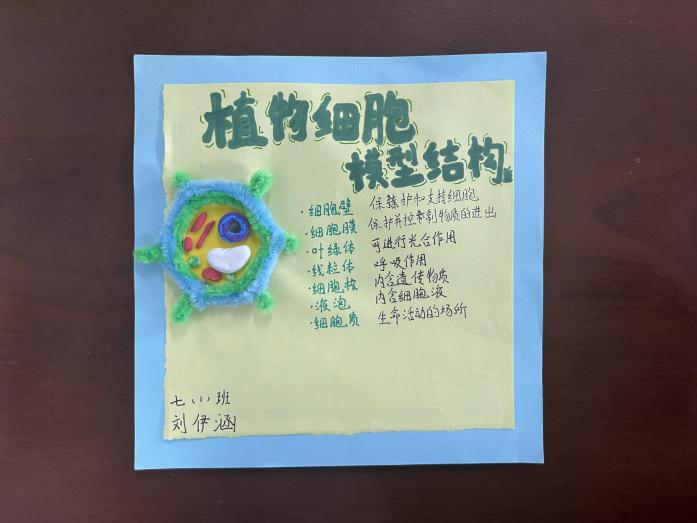 植物细胞
模型结构
·细胞壁 保护和支持细胞
·细胞膜 保护并控制物质的进出
·叶绿体 可进行光合作用
·线粒体 呼吸作用
·细胞核 内含遗传物质
·液泡 内含细胞液
·细胞质 生命活动的场所
七(1)班
刘伊涵